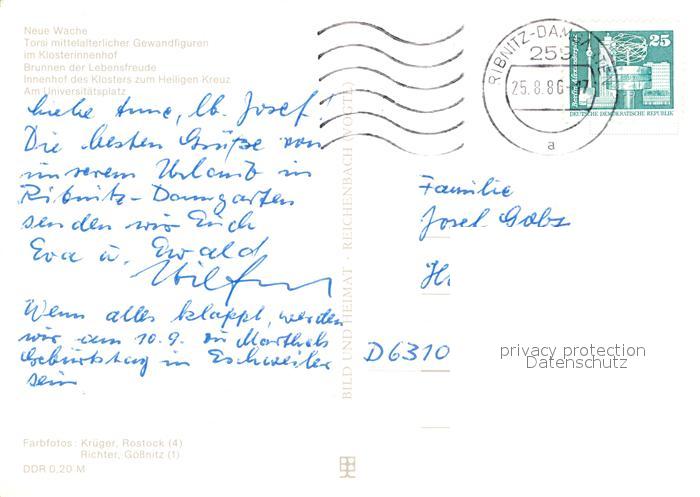 Neue Wache
Torsi mittelalterlicher Gewandfiguren
im Klosterinnenhof
Brunnen der Lebensfreude
Innenhof des Klosters zum Heiligen Kreuz
Am Universitätsplatz
Liebe Anne, lb. Josef!
Die besten Grüße von
unserem Urlaub in
Ribnitz-Damgarten
senden wir Euch
Eva u. Ewald
Wenn alles klappt, werden
wir am 10.9. zu
Geburtstag in Eschweiler
sein
Farbfotos: Krüger, Rostock (4)
Richter, Gößnitz (1)
DDR 0,20 M
BILD UND HEIMAT · REICHENBACH (VOGTL)
RIBNITZ-DAMGARTEN
259
25.8.86-17
a
25
DEUTSCHE DEMOKRATISCHE REPUBLIK
Familie
Josef
D6310
privacy protection
Datenschutz